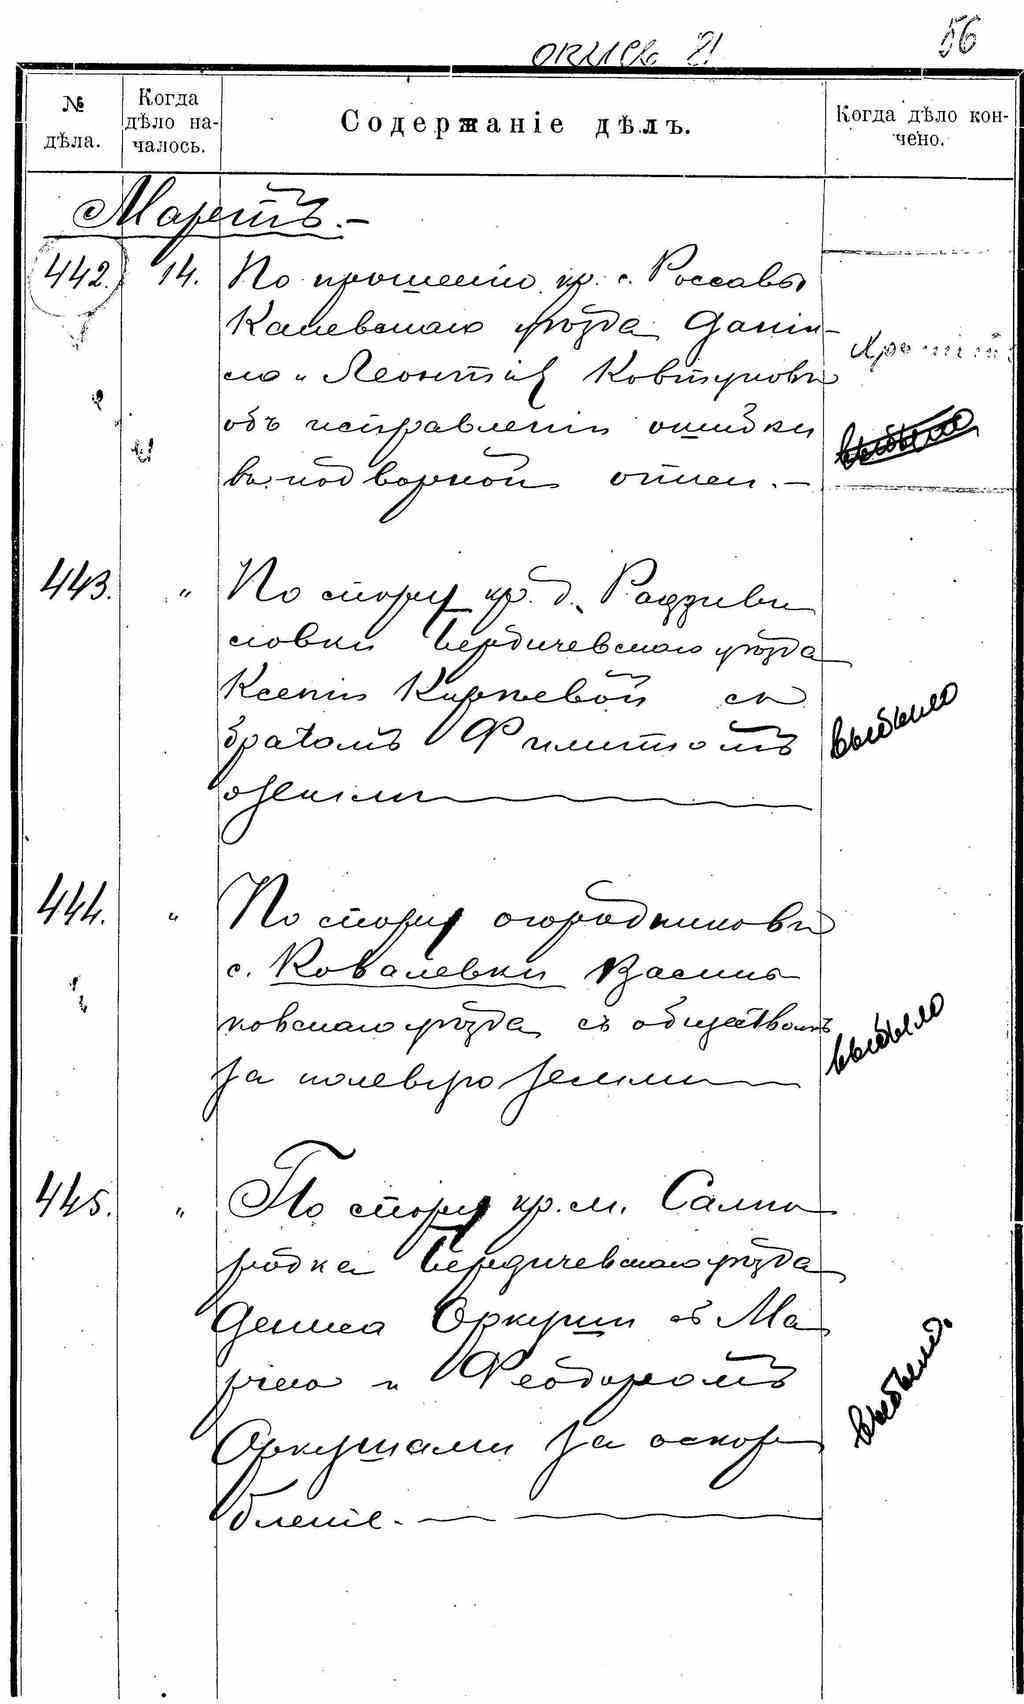 опись 21
56
№ дѣла.
Когда дѣло на-
чалось.
Содержаніе дѣлъ.
Когда дѣло кон-
чено.
Мартъ.-
442. 14. По прошенію кр. с. Россавы
Каневскаго уѣзда Дані-
ла и Леонтія Ковтуновы
объ исправленіи ошибки
въ подворной описи.-
выбыло
443. " По спору кр. д. Радзиви
ловки Бердичевскаго уѣзда
Ксеніи Киржевой съ
братомъ Филиппомъ
о земли
выбыло
444. " По спору огородниковъ
с. Ковалевки Василь
ковскаго уѣзда съ обществомъ
за полевую землю
выбыло
445. " По спору кр. м. Самго
родка Бердичевскаго уѣзда
Дениса Оркуши съ Ма
рѣею и Феодоромъ
Оркушами за оскор
бленіе.
выбыло.